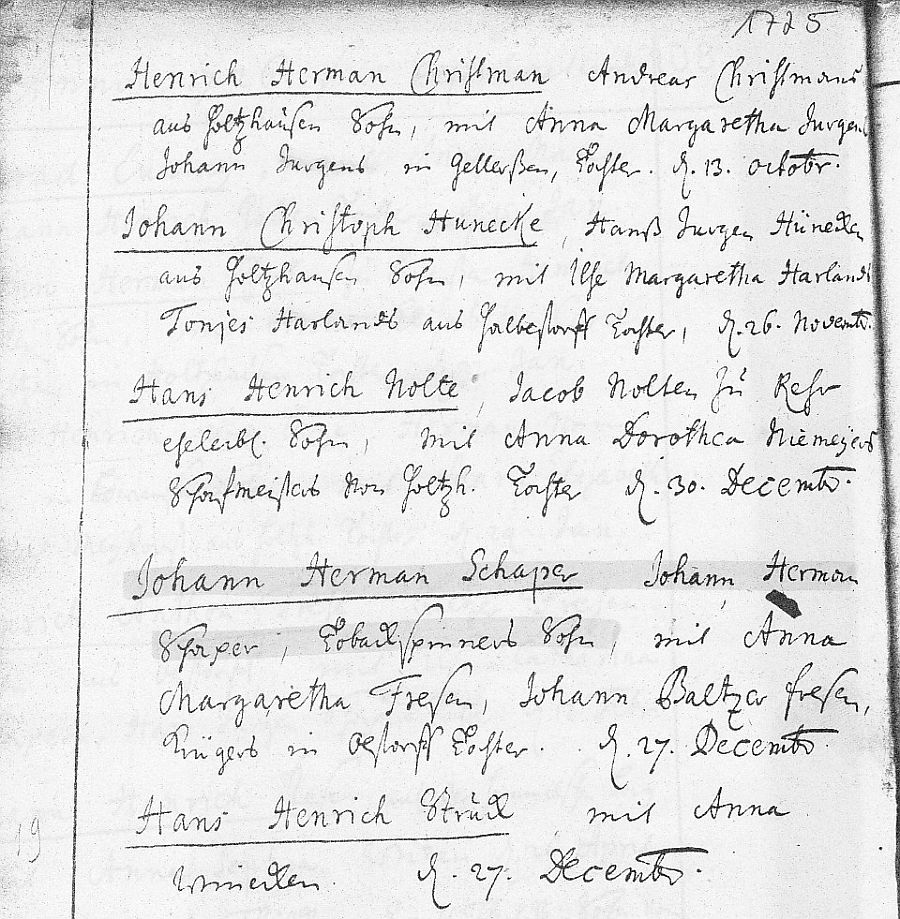 1725
Henrich Herman Christman Andreas Christmans
aus Holtzhausen Sohn, mit Anna Margaretha Jurgens
Johann Jurgens in Gellerßen, Tochter. d. 13. Octobr.
Johann Christoph Hunecke, Hanß Jurgen Hünecken
aus Holtzhausen Sohn, mit Ilse Margaretha Harlands
Tonjes Harlands aus Halvestorff Tochter, d. 26. Novembr.
Hans Henrich Nolte, Jacob Nolten zu Rehr
eheleibl. Sohn, mit Anna Dorothea Niemeyers
Schafmeisters von Holtzh. Tochter d. 30. Decembr.
Johann Herman Schaper Johann Herman
Schaper, Tobackspinners Sohn, mit Anna
Margaretha Fresen, Johann Baltzer fresen,
Krügers in Oestorff Tochter. d. 27. Decembr.
Hans Henrich Strück mit Anna
d. 27. Decembr.
19